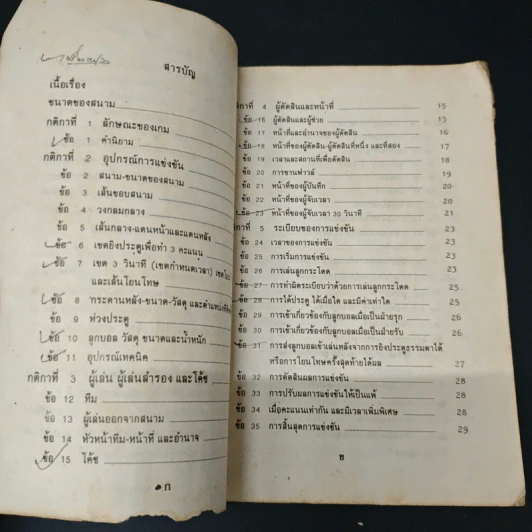 สารบัญ
เนื้อเรื่อง
ขนาดของสนาม
กติกาที่ 1 ลักษณะของเกม
ข้อ 1 คำนิยาม
กติกาที่ 2 อุปกรณ์การแข่งขัน
ข้อ 2 สนาม-ขนาดของสนาม
ข้อ 3 เส้นขอบสนาม
ข้อ 4 วงกลมกลาง
ข้อ 5 เส้นกลาง-แดนหน้าและแดนหลัง
ข้อ 6 เขตยิงประตูเพื่อทำ 3 คะแนน
ข้อ 7 เขต 3 วินาที (เขตกำหนดเวลา)
และเส้นโยนโทษ
ข้อ 8 กระดานหลัง-ขนาด-วัสดุ และตำแหน่ง
ข้อ 9 ห่วงประตู
ข้อ 10 ลูกบอล วัสดุ ขนาดและน้ำหนัก
ข้อ 11 อุปกรณ์เทคนิค
กติกาที่ 3 ผู้เล่น ผู้เล่นสำรอง และโค้ช
ข้อ 12 ทีม
ข้อ 13 ผู้เล่นออกจากสนาม
ข้อ 14 หัวหน้าทีม-หน้าที่ และอำนาจ
ข้อ 15 โค้ช
ก
กติกาที่ 4 ผู้ตัดสินและหน้าที่ 15
ข้อ 16 ผู้ตัดสินและผู้ช่วย 15
ข้อ 17 หน้าที่และอำนาจของผู้ตัดสิน 16
ข้อ 18 หน้าที่ของผู้ตัดสิน-ผู้ตัดสินที่หนึ่ง และที่สอง 17
ข้อ 19 เวลาและสถานที่เพื่อตัดสิน 17
ข้อ 20 การขานฟาวล์ 20
ข้อ 21 หน้าที่ของผู้บันทึก 20
ข้อ 22 หน้าที่ของผู้จับเวลา 20
ข้อ 23 หน้าที่ของผู้จับเวลา 30 วินาที 21
กติกาที่ 5 ระเบียบของการแข่งขัน 23
ข้อ 24 เวลาของการแข่งขัน 23
ข้อ 25 การเริ่มการแข่งขัน 23
ข้อ 26 การเล่นลูกกระโดด 23
ข้อ 27 การทำผิดระเบียบว่าด้วยการเล่นลูกกระโดด 24
ข้อ 28 การได้ประตู ได้เมื่อใด และมีค่าเท่าใด 25
ข้อ 29 การเข้าเกี่ยวข้องกับลูกบอลเมื่อเป็นฝ่ายรุก 26
ข้อ 30 การเข้าเกี่ยวข้องกับลูกบอลเมื่อเป็นฝ่ายรับ 26
ข้อ 31 การส่งลูกบอลเข้าเล่นหลังจากการยิงประตูธรรมดาได้
หรือการโยนโทษครั้งสุดท้ายได้ผล 27
ข้อ 32 การตัดสินผลการแข่งขัน 28
ข้อ 33 การปรับผลการแข่งขันให้เป็นแพ้ 28
ข้อ 34 เมื่อคะแนนเท่ากัน และมีเวลาเพิ่มพิเศษ 28
ข้อ 35 การสิ้นสุดการแข่งขัน 29
ข